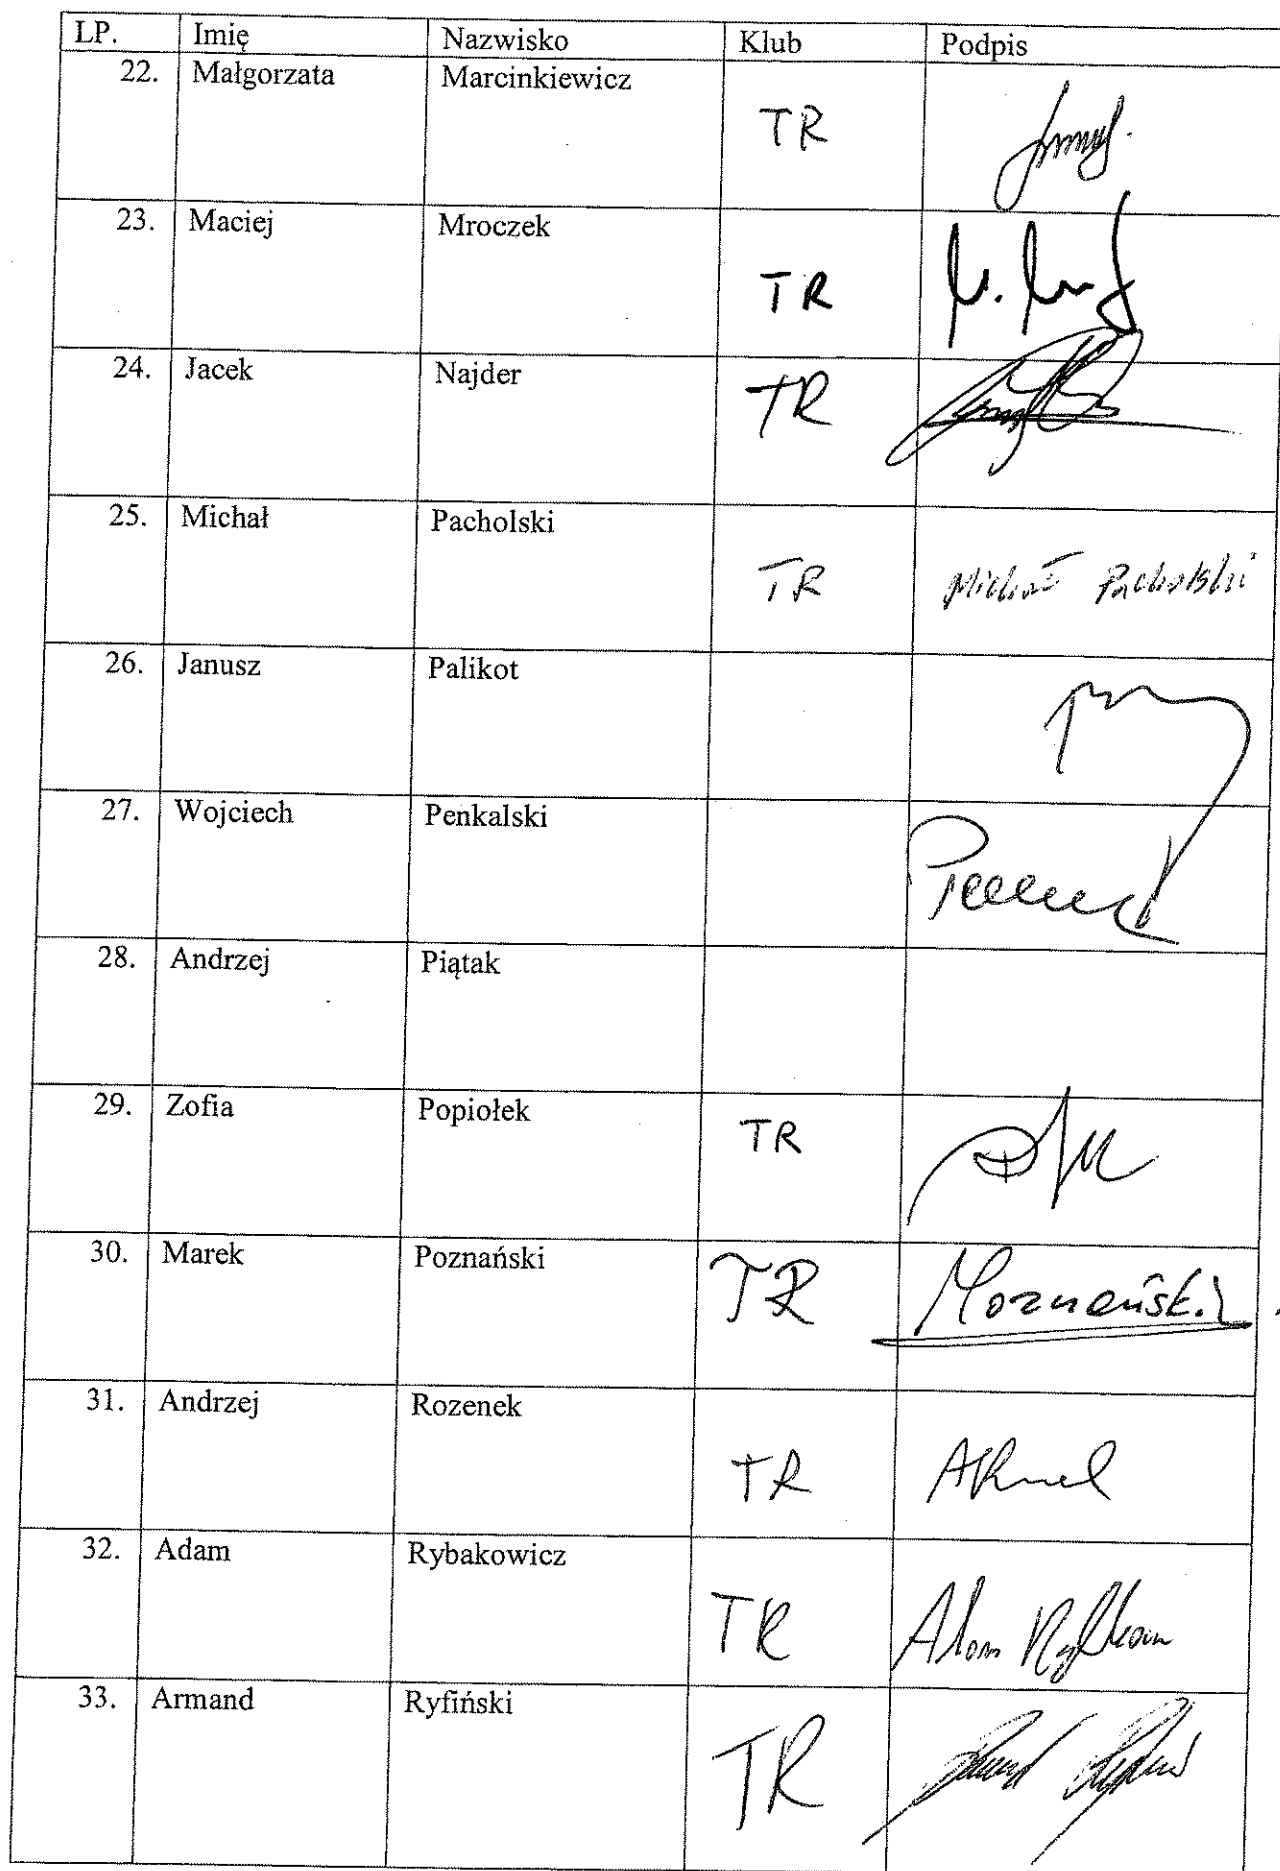 LP. Imię Nazwisko Klub Podpis
22. Małgorzata Marcinkiewicz TR
23. Maciej Mroczek TR
24. Jacek Najder TR
25. Michał Pacholski TR Michał Pacholski
26. Janusz Palikot
27. Wojciech Penkalski
28. Andrzej Piątak
29. Zofia Popiołek TR
30. Marek Poznański TR
31. Andrzej Rozenek TR
32. Adam Rybakowicz TR Adam
33. Armand Ryfiński TR